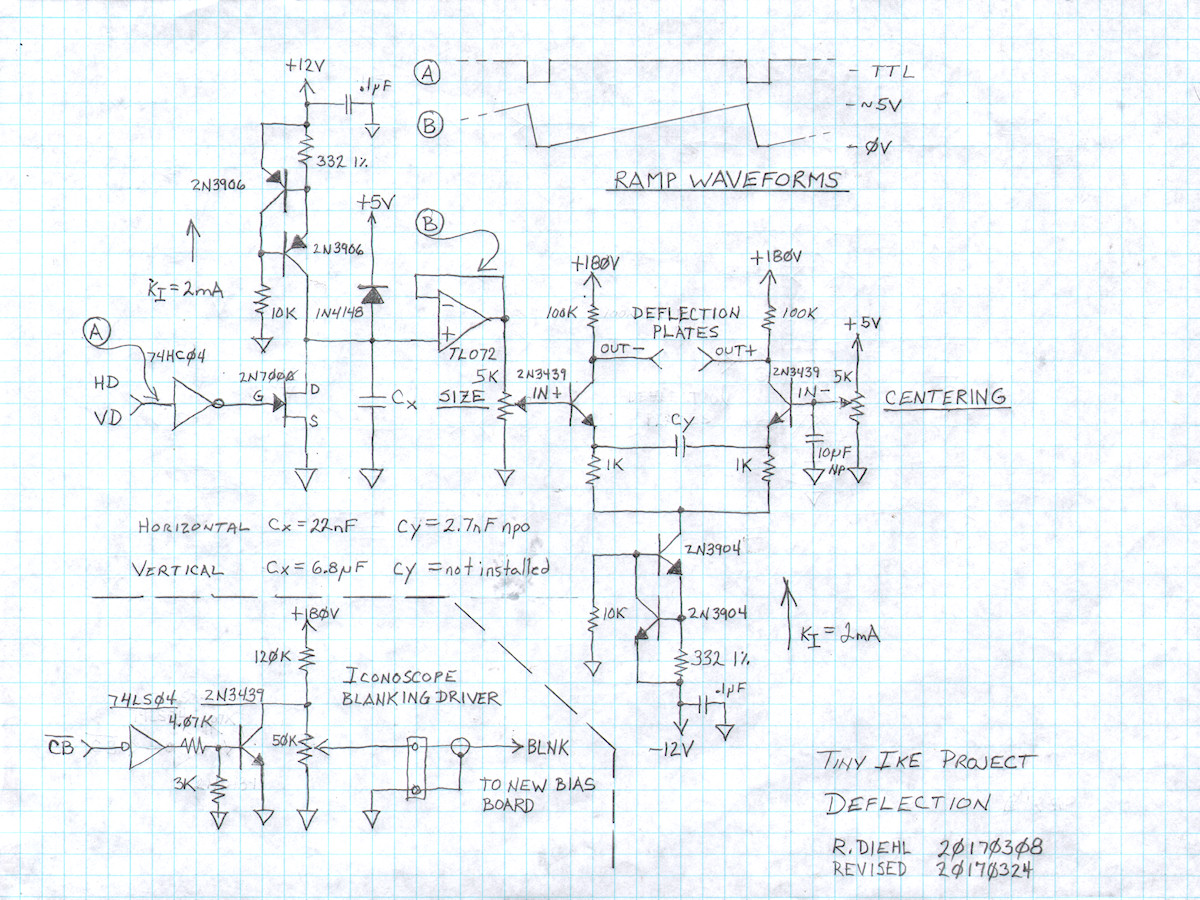 +12V
.1µF
332 1%
2N3906
2N3906
K_I = 2mA
10K
A
TTL
B
~5V
ØV
RAMP WAVEFORMS
+5V
B
1N4148
−
+
TL072
A
74HCØ4
HD
VD
2N7ØØØ
G
D
S
Cx
5K
SIZE
+18ØV
+18ØV
100K
DEFLECTION
PLATES
100K
OUT−
OUT+
+5V
2N3439
IN+
2N3439
IN−
5K
CENTERING
Cy
1K
1K
10µF
NP
HORIZONTAL Cx = 22nF Cy = 2.7nF npo
VERTICAL Cx = 6.8µF Cy = not installed
2N3904
10K
2N3904
332 1%
K_I = 2mA
.1µF
−12V
+18ØV
12ØK
ICONOSCOPE
BLANKING DRIVER
74LSØ4
2N3439
4.Ø7K
CB
50K
BLNK
3K
TO NEW BIAS
BOARD
TINY IKE PROJECT
DEFLECTION
R.DIEHL 2Ø17Ø3Ø8
REVISED 2Ø17Ø324